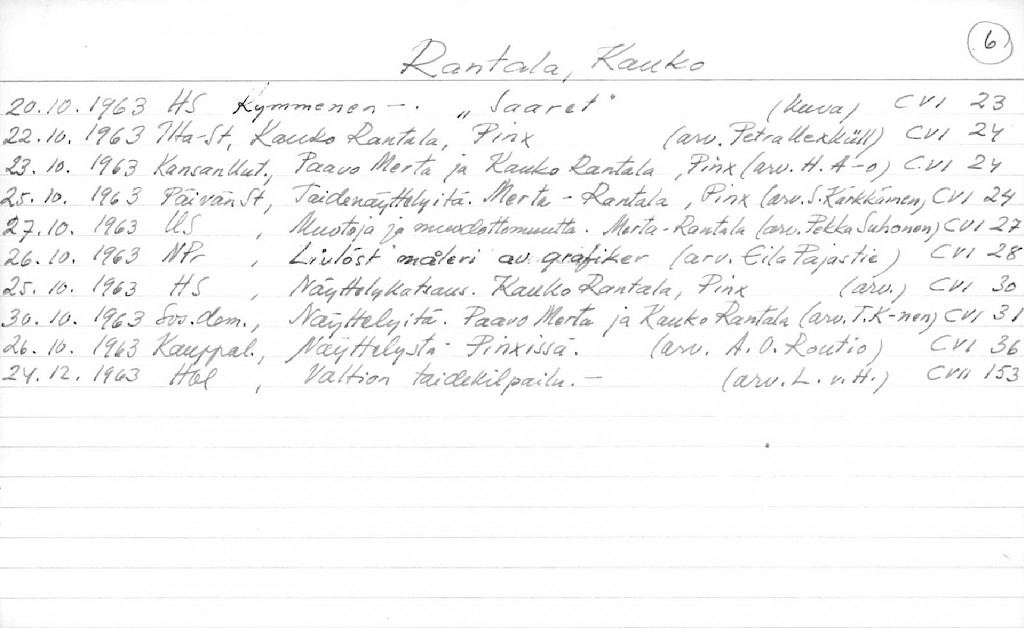 6
Rantala, Kauko
20.10.1963 HS Kymmenen -. "Saaret" (kuva) CVI 23
22.10.1963 Ilta-St, Kauko Rantala, Pinx (arv. Petra Uexküll) CVI 24
23.10.1963 Kansan Uut., Paavo Merta ja Kauko Rantala, Pinx (arv. H. A-o) CVI 24
25.10.1963 Päivän St, Taidenäyttelyitä. Merta - Rantala, Pinx (arv. S. Kärkkäinen) CVI 24
27.10.1963 US, Muotoja ja muodottomuutta. Merta-Rantala (arv. Pekka Suhonen) CVI 27
26.10.1963 NPr, Livlöst måleri av grafiker (arv. Eila Pajastie) CVI 28
25.10.1963 HS, Näyttelykatsaus. Kauko Rantala, Pinx (arv.) CVI 30
30.10.1963 Sos.dem., Näyttelyitä. Paavo Merta ja Kauko Rantala (arv. T.K-nen) CVI 31
26.10.1963 Kauppal., Näyttelystä Pinxissä. (arv. A. O. Routio) CVI 36
24.12.1963 Hbl, Valtion taidekilpailu. - (arv. L. v. H.) CVII 153